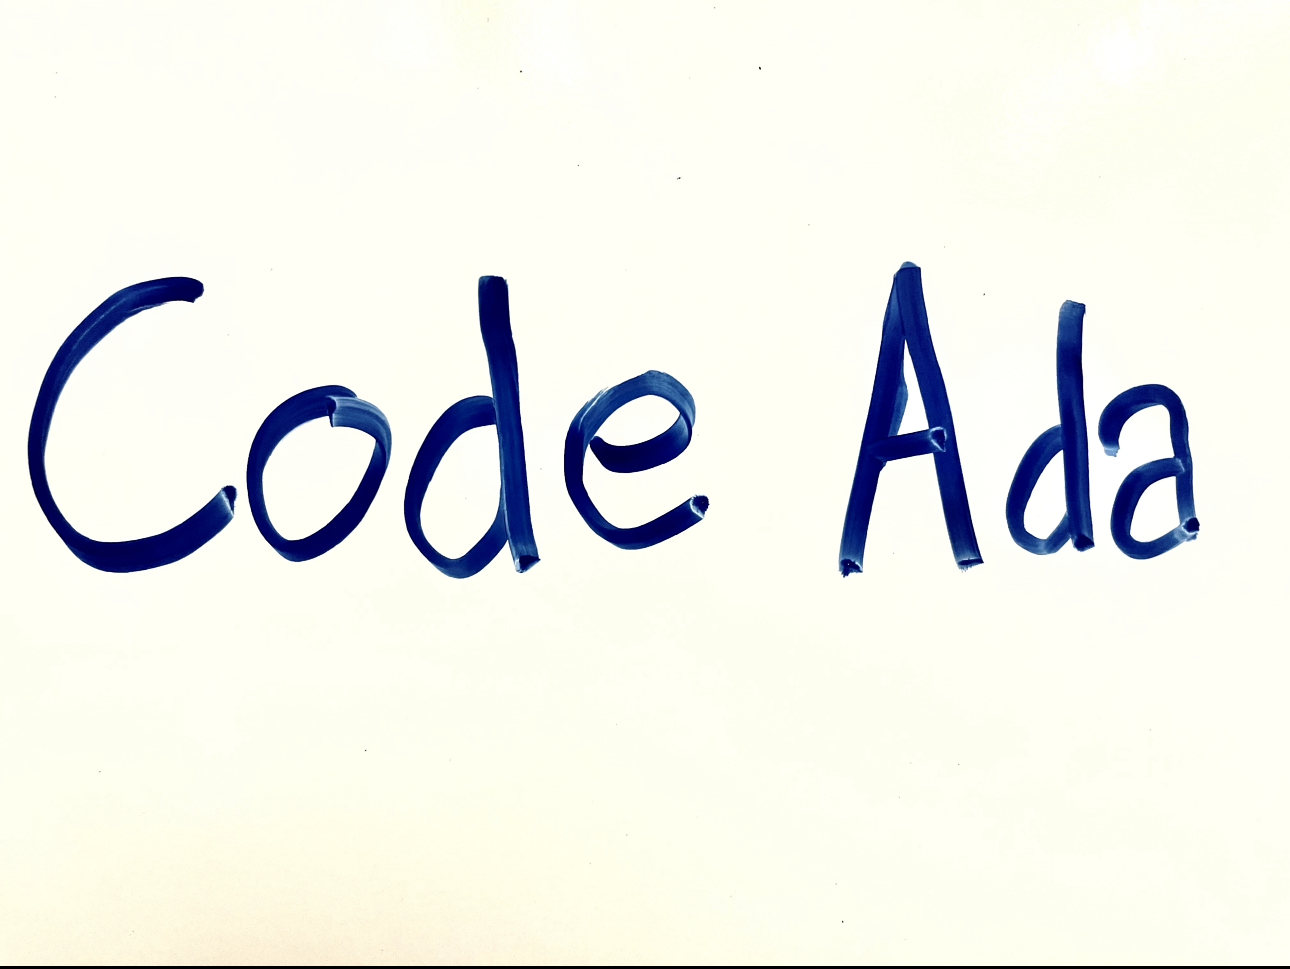 Code Ada